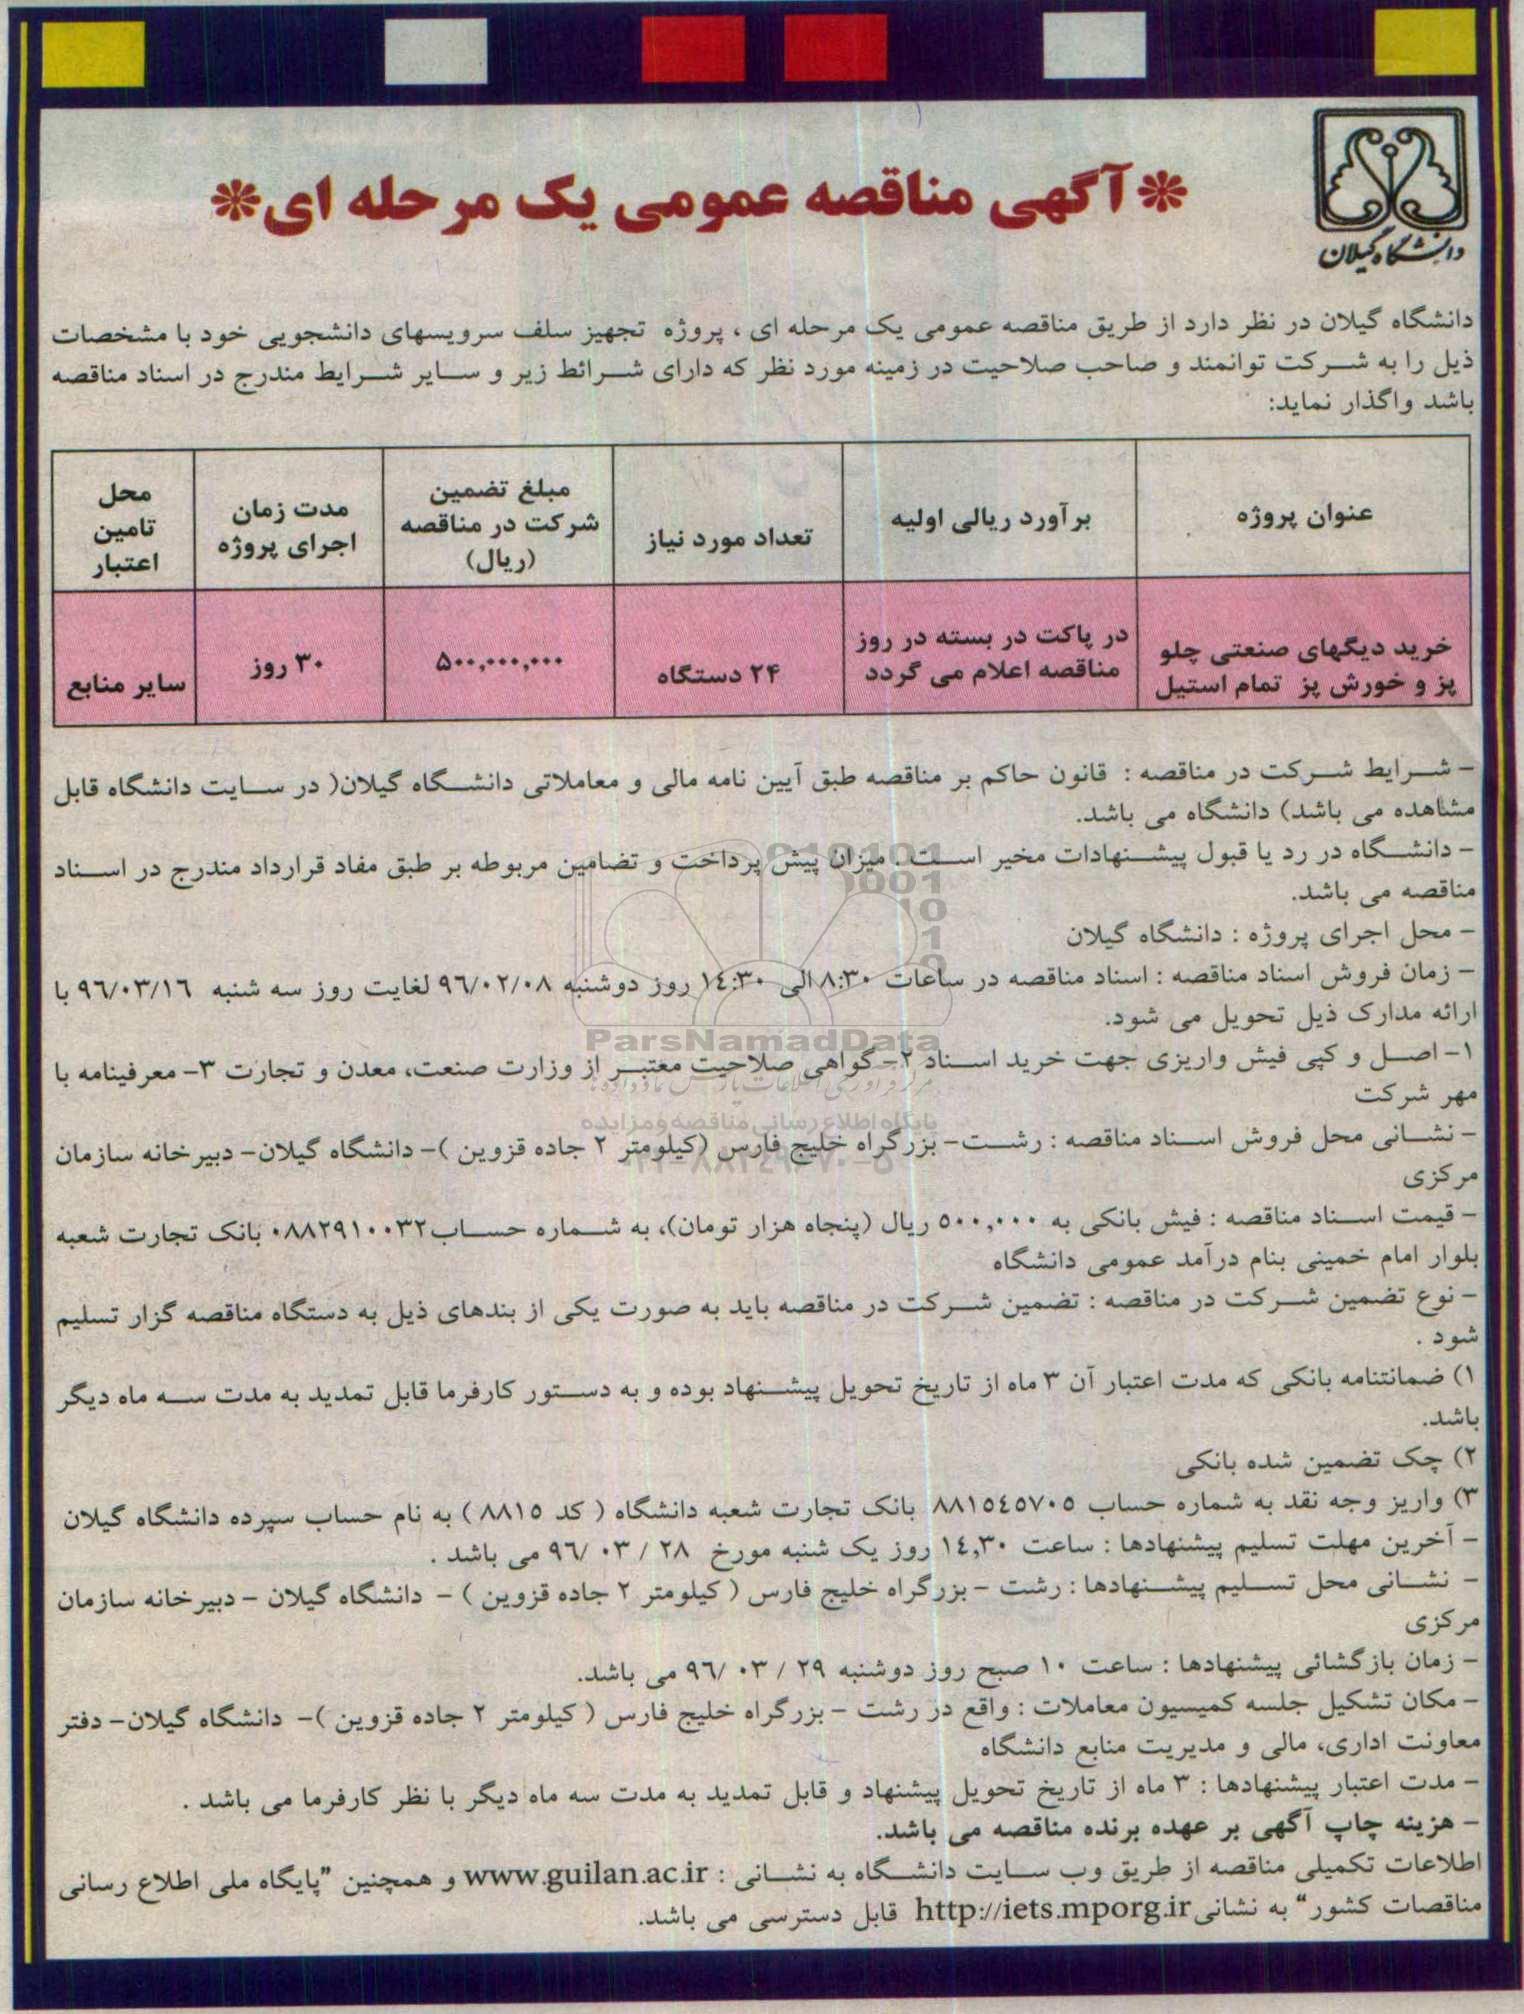 دانشگاه گیلان
❊آگهی مناقصه عمومی یک مرحله ای❊
دانشگاه گیلان در نظر دارد از طریق مناقصه عمومی یک مرحله ای ، پروژه تجهیز سلف سرویسهای دانشجویی خود با مشخصات
ذیل را به شرکت توانمند و صاحب صلاحیت در زمینه مورد نظر که دارای شرائط زیر و سایر شرایط مندرج در اسناد مناقصه
باشد واگذار نماید:
عنوان پروژه
برآورد ریالی اولیه
تعداد مورد نیاز
مبلغ تضمین
شرکت در مناقصه
(ریال)
مدت زمان
اجرای پروژه
محل
تامین
اعتبار
خرید دیگهای صنعتی چلو
پز و خورش پز تمام استیل
در پاکت در بسته در روز
مناقصه اعلام می گردد
۲۴ دستگاه
۵۰۰,۰۰۰,۰۰۰
۳۰ روز
سایر منابع
- شرایط شرکت در مناقصه : قانون حاکم بر مناقصه طبق آیین نامه مالی و معاملاتی دانشگاه گیلان( در سایت دانشگاه قابل
مشاهده می باشد) دانشگاه می باشد.
- دانشگاه در رد یا قبول پیشنهادات مخیر است . میزان پیش پرداخت و تضامین مربوطه بر طبق مفاد قرارداد مندرج در اسناد
مناقصه می باشد.
- محل اجرای پروژه : دانشگاه گیلان
- زمان فروش اسناد مناقصه : اسناد مناقصه در ساعات ۸:۳۰ الی ۱٤:۳۰ روز دوشنبه ۹٦/۰۲/۰۸ لغایت روز سه شنبه ۹٦/۰۳/۱٦ با
ارائه مدارک ذیل تحویل می شود.
۱- اصل و کپی فیش واریزی جهت خرید اسناد ۲- گواهی صلاحیت معتبر از وزارت صنعت، معدن و تجارت ۳- معرفینامه با
مهر شرکت
- نشانی محل فروش اسناد مناقصه : رشت- بزرگراه خلیج فارس (کیلومتر ۲ جاده قزوین )- دانشگاه گیلان- دبیرخانه سازمان
مرکزی
- قیمت اسناد مناقصه : فیش بانکی به ۵۰۰,۰۰۰ ریال (پنجاه هزار تومان)، به شماره حساب۰۸۸۲۹۱۰۰۳۲ بانک تجارت شعبه
بلوار امام خمینی بنام درآمد عمومی دانشگاه
- نوع تضمین شرکت در مناقصه : تضمین شرکت در مناقصه باید به صورت یکی از بندهای ذیل به دستگاه مناقصه گزار تسلیم
شود .
۱) ضمانتنامه بانکی که مدت اعتبار آن ۳ ماه از تاریخ تحویل پیشنهاد بوده و به دستور کارفرما قابل تمدید به مدت سه ماه دیگر
باشد.
۲) چک تضمین شده بانکی
۳) واریز وجه نقد به شماره حساب ۸۸۱٥٤٥۷۰٥ بانک تجارت شعبه دانشگاه ( کد ۸۸۱٥ ) به نام حساب سپرده دانشگاه گیلان
- آخرین مهلت تسلیم پیشنهادها : ساعت ۱٤,۳۰ روز یک شنبه مورخ ۲۸ / ۰۳ /۹٦ می باشد .
- نشانی محل تسلیم پیشنهادها : رشت - بزرگراه خلیج فارس ( کیلومتر ۲ جاده قزوین ) - دانشگاه گیلان - دبیرخانه سازمان
مرکزی
- زمان بازگشائی پیشنهادها : ساعت ۱۰ صبح روز دوشنبه ۲۹ / ۰۳ /۹٦ می باشد.
- مکان تشکیل جلسه کمیسیون معاملات : واقع در رشت - بزرگراه خلیج فارس ( کیلومتر ۲ جاده قزوین )- دانشگاه گیلان- دفتر
معاونت اداری، مالی و مدیریت منابع دانشگاه
- مدت اعتبار پیشنهادها : ۳ ماه از تاریخ تحویل پیشنهاد و قابل تمدید به مدت سه ماه دیگر با نظر کارفرما می باشد .
- هزینه چاپ آگهی بر عهده برنده مناقصه می باشد.
اطلاعات تکمیلی مناقصه از طریق وب سایت دانشگاه به نشانی : www.guilan.ac.ir و همچنین "پایگاه ملی اطلاع رسانی
مناقصات کشور" به نشانی http://iets.mporg.ir قابل دسترسی می باشد.
ParsNamadData
پایگاه اطلاع رسانی مناقصه و مزایده